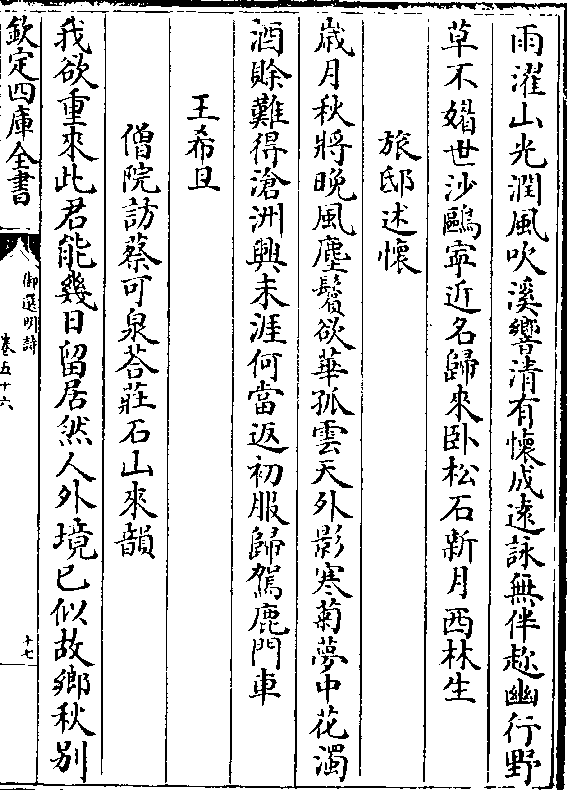 雨濯山光潤風吹溪響清有懷成遠詠無伴趂幽行野
草不媚世沙鷗寧近名歸來卧松石新月西林生
旅邸述懷
歲月秋將晚風塵鬢欲華孤雲天外影寒菊夢中花濁
酒賒難得滄洲興未涯何當返初服歸駕鹿門車
王希旦
僧院訪蔡可泉荅莊石山來韻
我欲重來此君能幾日留居然人外境已似故鄉秋别
欽定四庫全書
御選明詩
卷五十六
十七